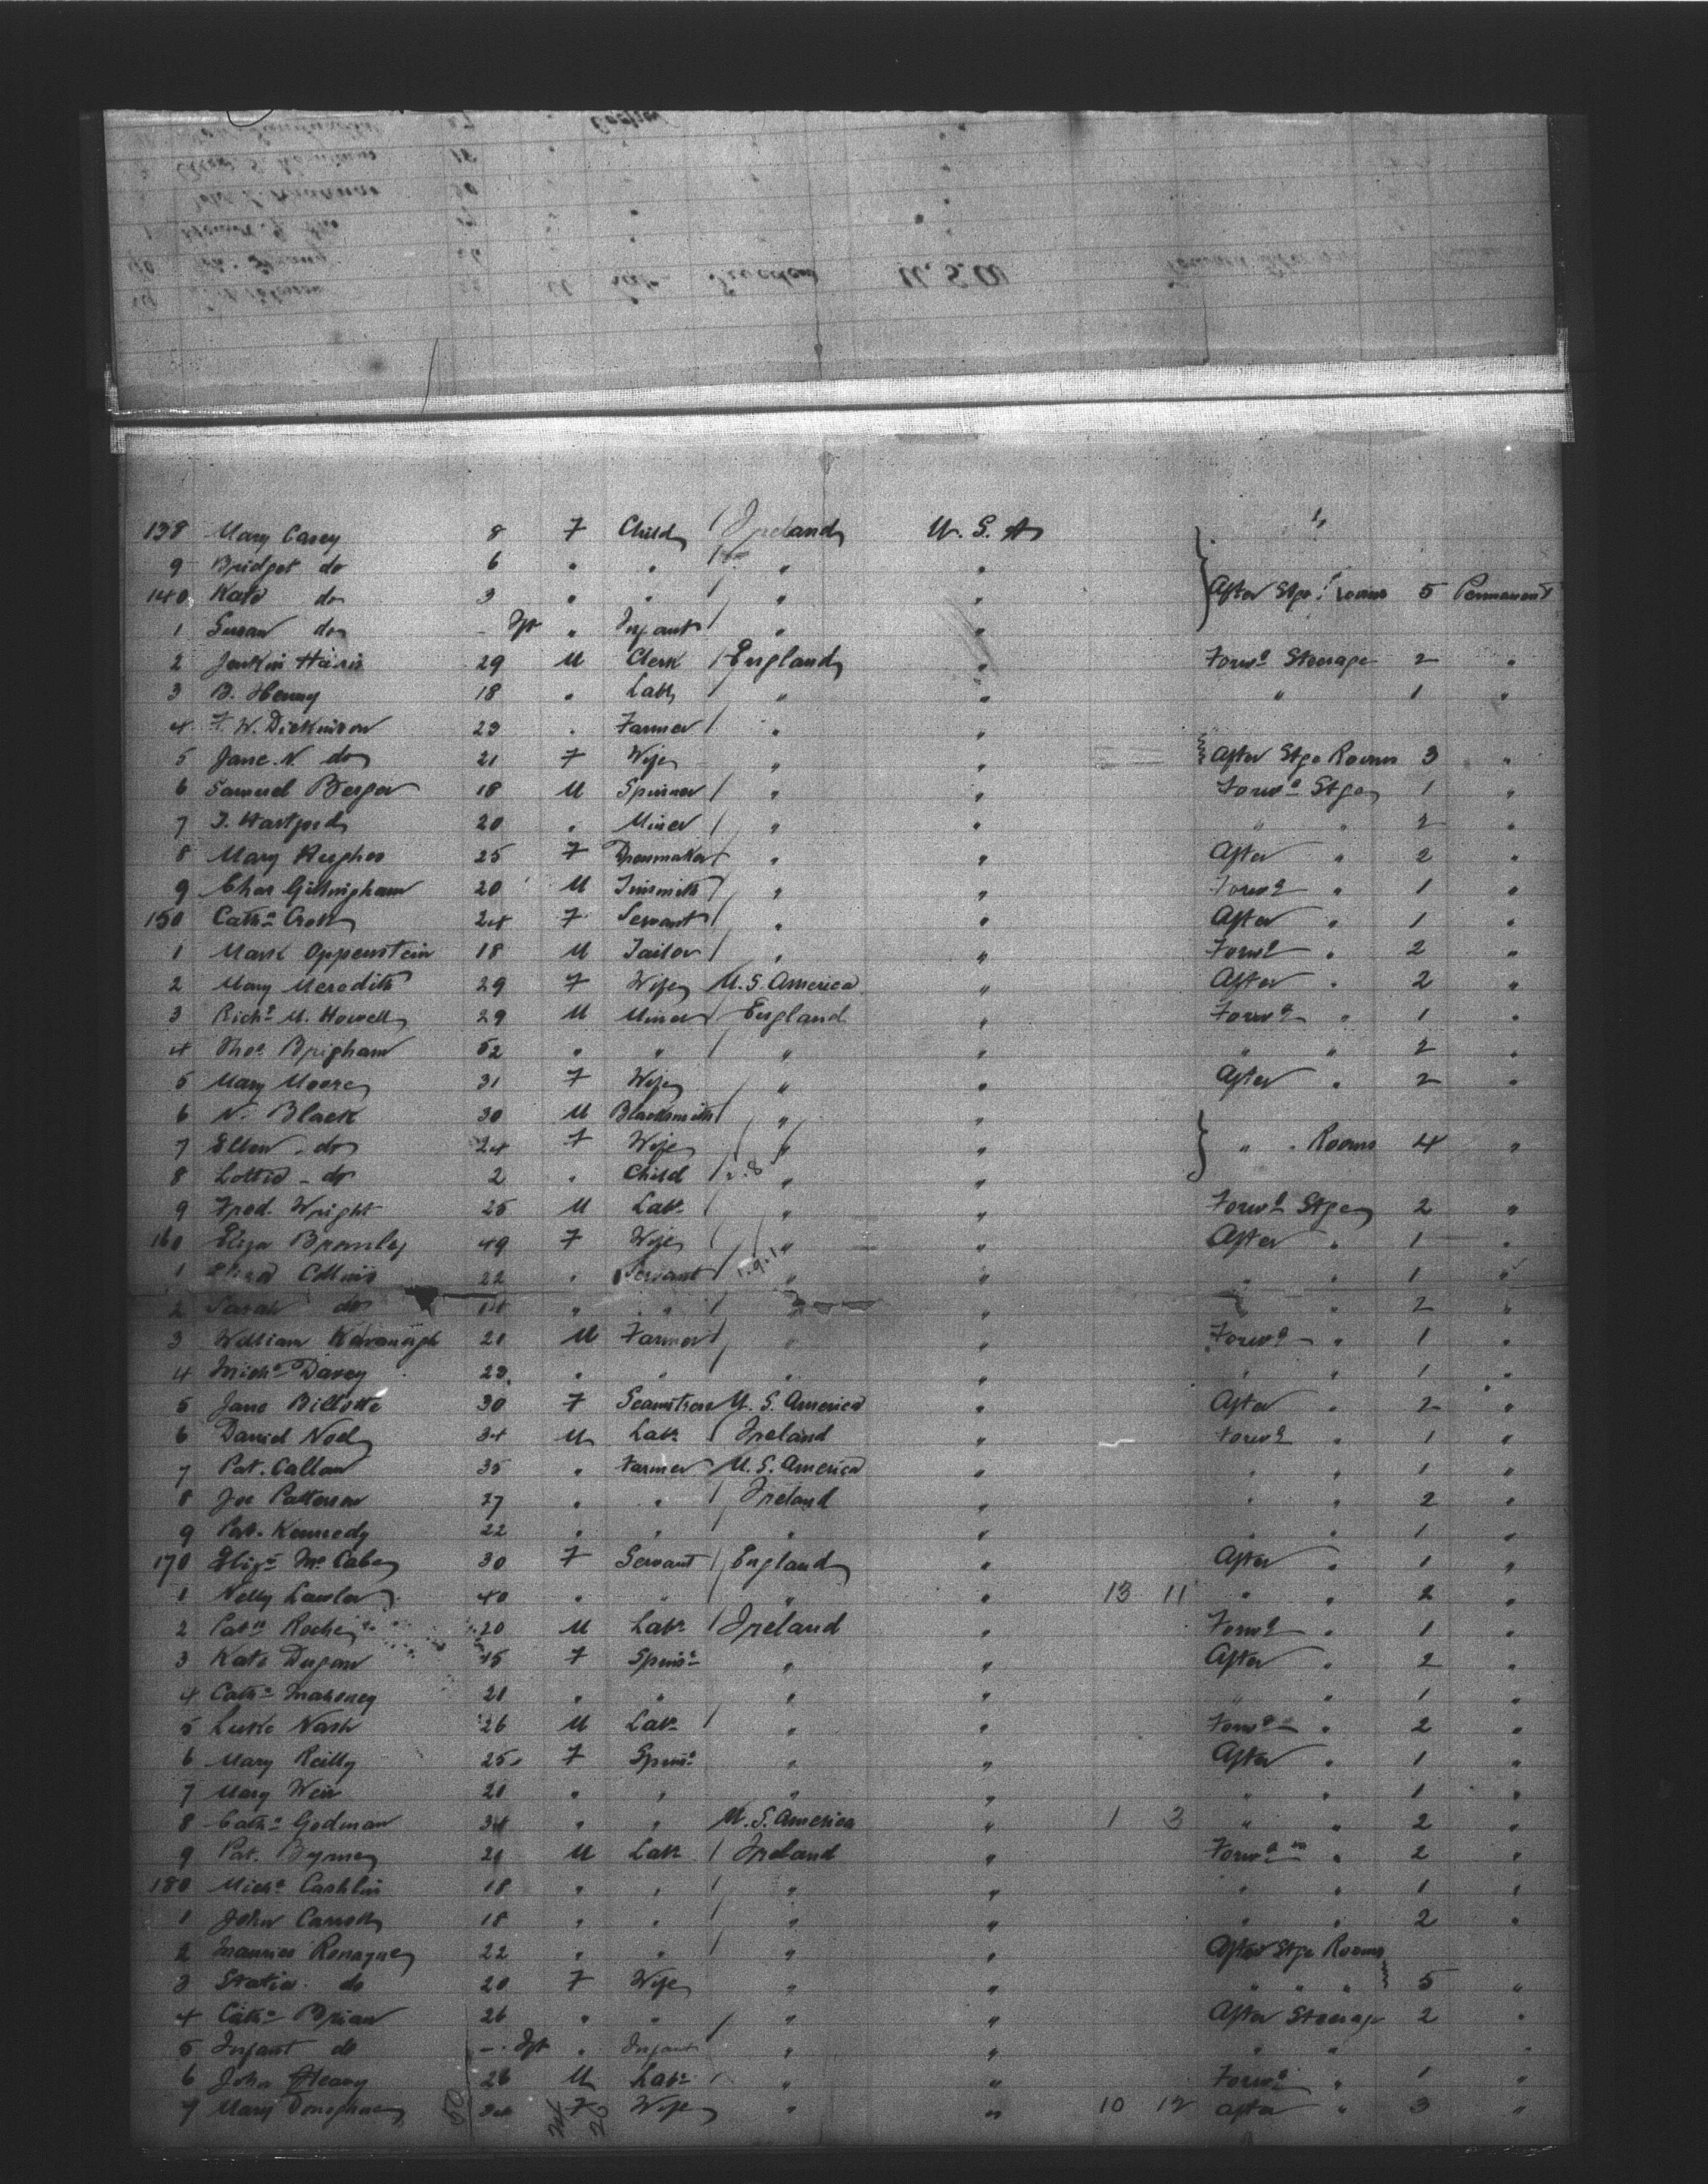 138 Mary Casey 8 F Child / Ireland U.S.A
9 Bridget do 6 " " / " "
140 Kate do 3 " " / " " After Stge Rooms 5 Permanent
1 Susan do - Inft " Infant / " "
2 Jenkin Haris 29 M Clerk / England " Forwd Steerage 2 "
3 B. Henry 18 " Labr / " " " 1 "
4 F. W. Dickinson 23 " Farmer / " "
5 Jane N. do 21 F Wife " " After Stge Rooms 3 "
6 Samuel Berger 18 M Spinner / " " Forwd Stge 1 "
7 J. Hartford 20 " Miner / " " " " 2 "
8 Mary Hughes 25 F Dressmaker / " " After " 2 "
9 Chas Gillingham 20 M Tinsmith / " " Forwd " 1 "
150 Cathe Croft 24 F Servant / " " After " 1 "
1 Mark Oppenstein 18 M Tailor / " " Forwd " 2 "
2 Mary Meredith 29 F Wife U.S. America " After " 2 "
3 Richd M. Howell 29 M Miner / England " Forwd " 1 "
4 Thos Brigham 52 " " / " " " " 2 "
5 Mary Moore 31 F Wife / " " After " 2 "
6 N. Black 30 M Blacksmith / " "
7 Ellen - do 24 F Wife / " " " " Rooms 4 "
8 Lottie - do 2 " Child / " "
9 Fred. Wright 25 M Labr / " " Forwd Stge 2 "
160 Eliza Bromley 49 F Wife / " " After " 1 "
1 Collins 22 " Servant / " " " " 1 "
2 Sarah do 14 " " / " " " " 2 "
3 William Kavanagh 21 M Farmer / " " Forwd " 1 "
4 Michl Davey 23 " " / " " " " 1 "
5 Jane Billotte 30 F Seamstress U.S. America " After " 2 "
6 Daniel Noel 34 M Labr / Ireland " Forwd " 1 "
7 Pat. Callan 35 " Farmer U.S. America " " " 1 "
8 Joe Patterson 27 " " / Ireland " " " 2 "
9 Pat. Kennedy 22 " " / " " " " 1 "
170 Elizth McCabe 30 F Servant / England " After " 1 "
1 Nelly Lawlor 40 " " / " " 13 11 " " 2 "
2 Patk Roche 20 M Labr / Ireland " Forwd " 1 "
3 Kate Dugan 45 F Spinsr " " After " 2 "
4 Cathe Mahoney 21 " " " " " " 1 "
5 Luke Nash 26 M Labr / " " Forwd " 2 "
6 Mary Reilly 25 F Spinsr " " After " 1 "
7 Mary Weir 21 " " " " " " 1 "
8 Cathe Godman 34 " " U.S. America " 1 3 " " 2 "
9 Pat. Byrne 21 M Labr / Ireland " Forwd " 2 "
180 Michl Cashlin 18 " " / " " " " 1 "
1 John Carroll 18 " " / " " " " 2 "
2 Maurice Ronayne 22 " " / " " After Stge Rooms
3 Statia do 20 F Wife " " " " " 5 "
4 Cathe Brian 26 " " / " " After Steerage 2 "
5 Infant do - Inft " Infant " " " " "
6 John Heavy 26 M Labr / " " Forwd " 1 "
7 Mary Donoghue 34 F Wife " " 10 12 After " 3 "